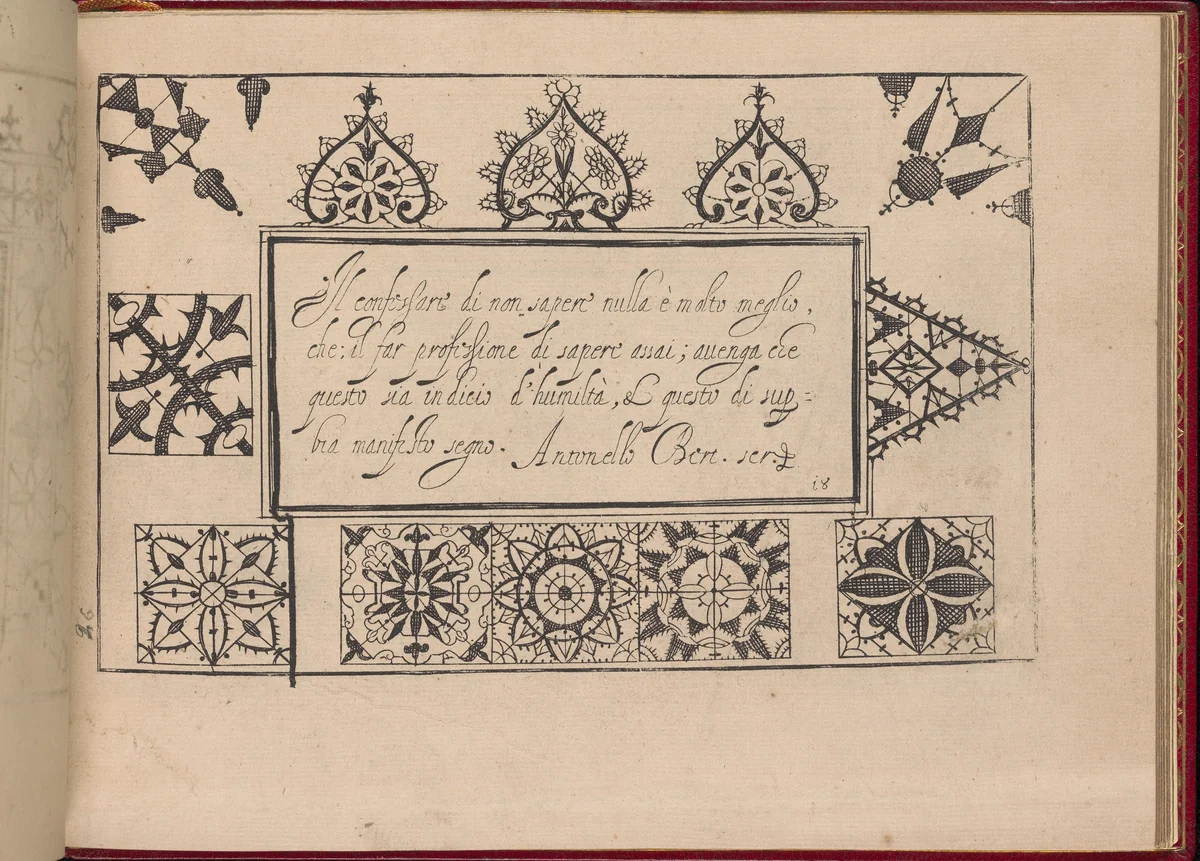 Il confessare di non sapere nulla è molto meglio,
che; il far professione di sapere assai; auenga che
questo sia indicio d'humiltà, & questo di sup=
bia manifesto segno. Antonello Bert. ser.
18
26